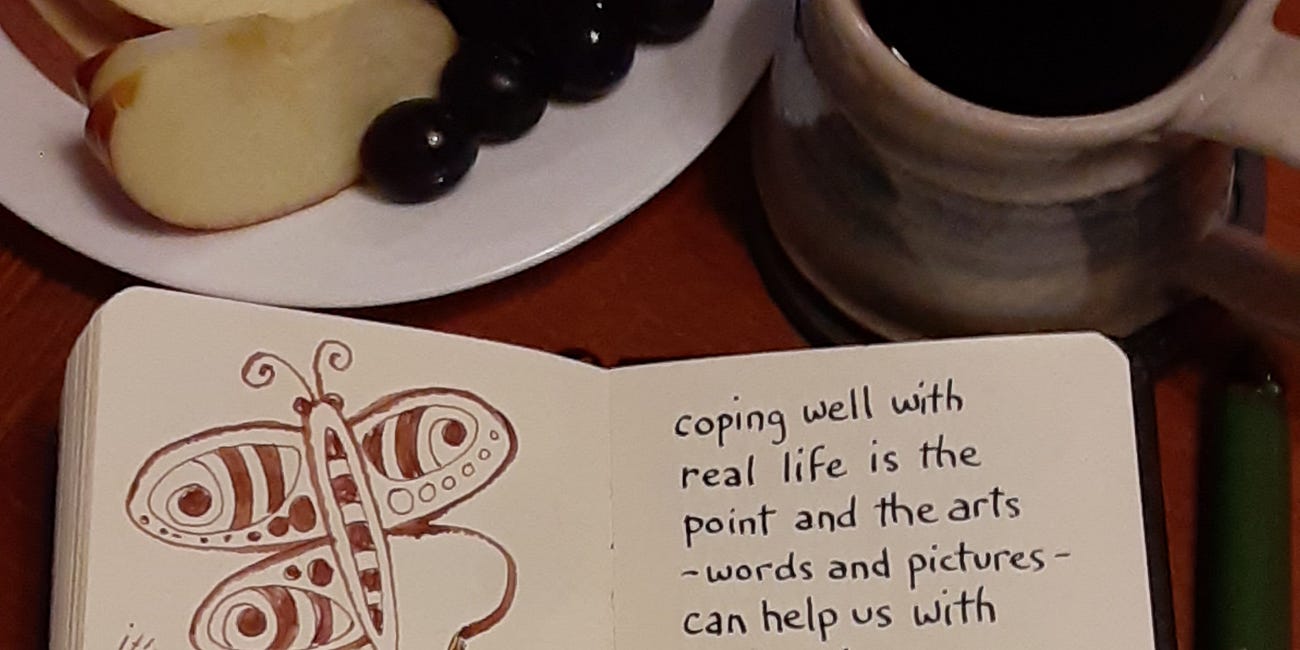 coping well with
real life is the
point and the arts
-words and pictures-
can help us with